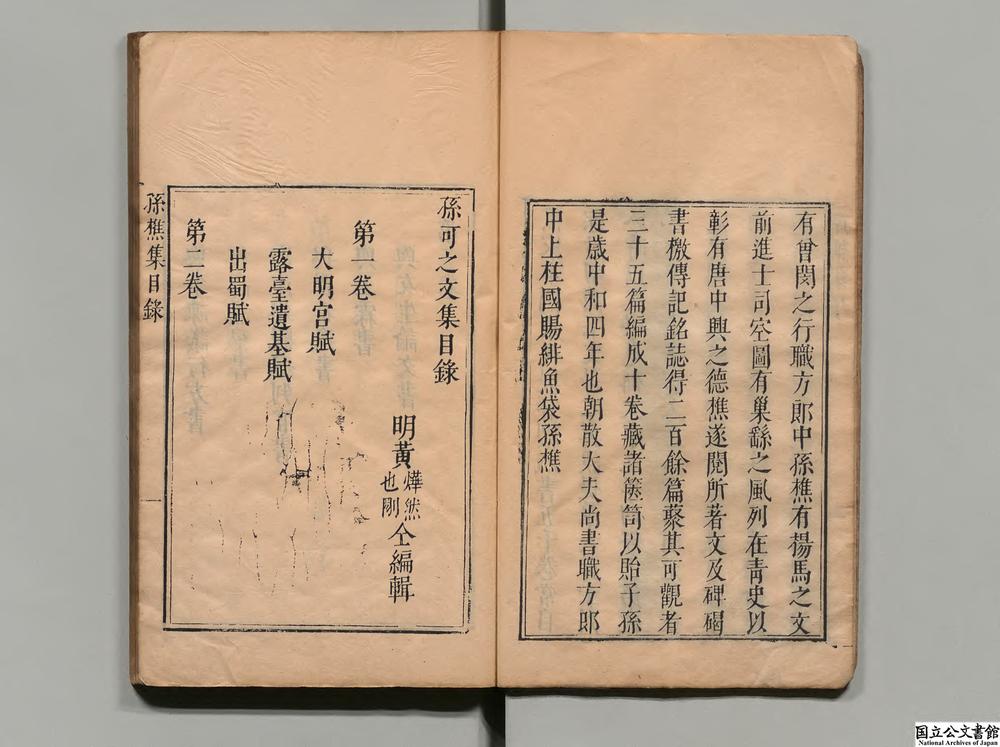 有曾閔之行職方郎中孫樵有揚馬之文
前進士司空圖有巢繇之風列在青史以
彰有唐中興之德樵遂閱所著文及碑碣
書檄傳記銘誌得二百餘篇蘩其可觀者
三十五篇編成十卷藏諸篋笥以貽子孫
是歳中和四年也朝散大夫尚書職方郎
中上柱國賜緋魚袋孫樵
孫可之文集目錄
明黃燁然也剛仝編輯
第一卷
大明宮賦
露臺遺基賦
出蜀賦
第二卷
孫樵集目錄
国立公文書館
National Archives of Japan